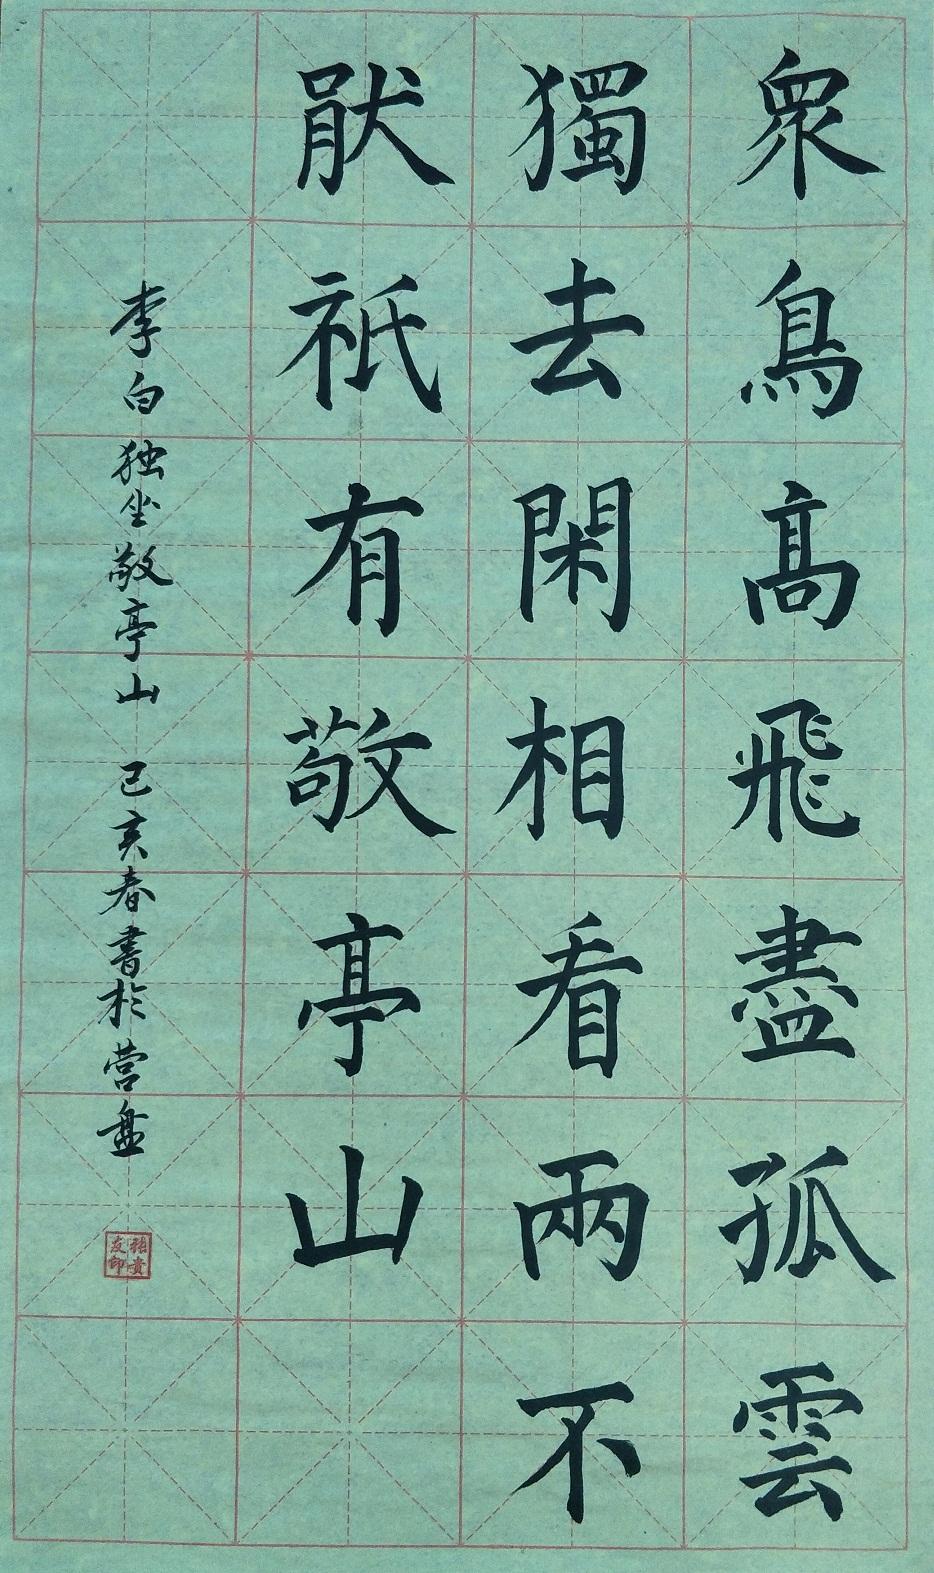 眾鳥高飛盡孤雲
獨去閑相看兩不
猒祇有敬亭山
李白独坐敬亭山 己亥春書於营盘
張貴友印